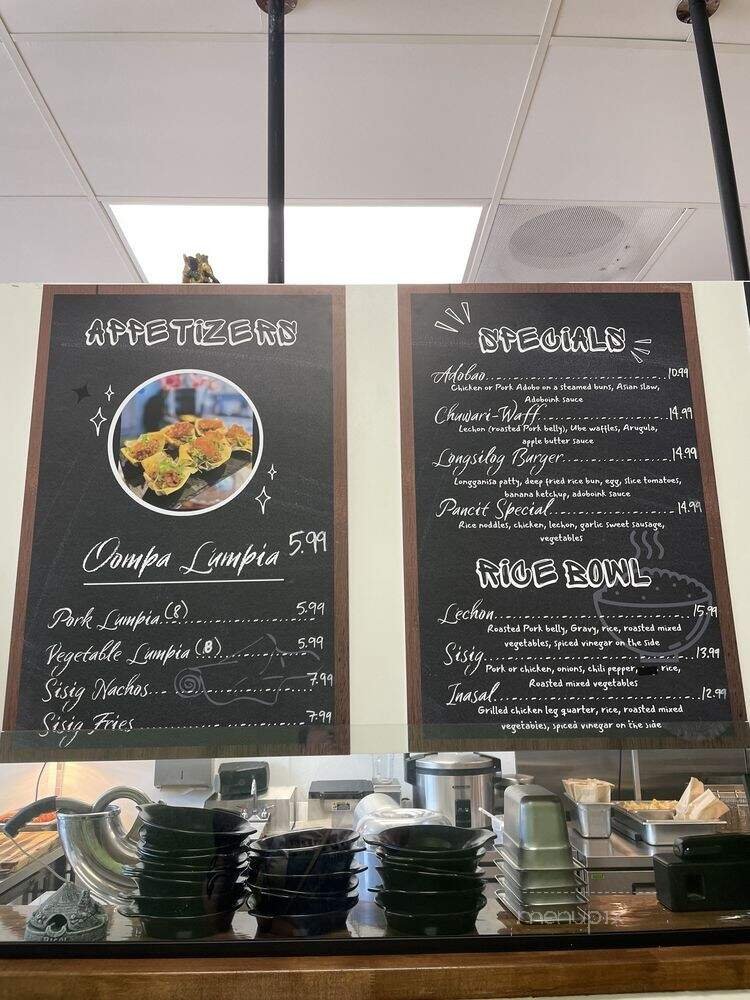 APPETIZERS
Oompa Lumpia 5.99
Pork Lumpia (8) 5.99
Vegetable Lumpia (8) 5.99
Sisig Nachos 7.99
Sisig Fries 7.99
SPECIALS
Adobao 10.99
Chicken or Pork Adobo on a steamed buns, Asian slaw,
Adoboink sauce
Chuwari-Waff 14.99
Lechon (roasted Pork belly), Ube waffles, Arugula,
apple butter sauce
Longsilog Burger 14.99
Longganisa patty, deep fried rice bun, egg, slice tomatoes,
banana ketchup, adoboink sauce
Pancit Special 14.99
Rice noddles, chicken, lechon, garlic sweet sausage,
vegetables
RICE BOWL
Lechon 15.99
Roasted Pork belly, Gravy, rice, roasted mixed
vegetables, spiced vinegar on the side
Sisig 13.99
Pork or chicken, onions, chili pepper, rice,
Roasted mixed vegetables
Inasal 12.99
Grilled chicken leg quarter, rice, roasted mixed
vegetables, spiced vinegar on the side